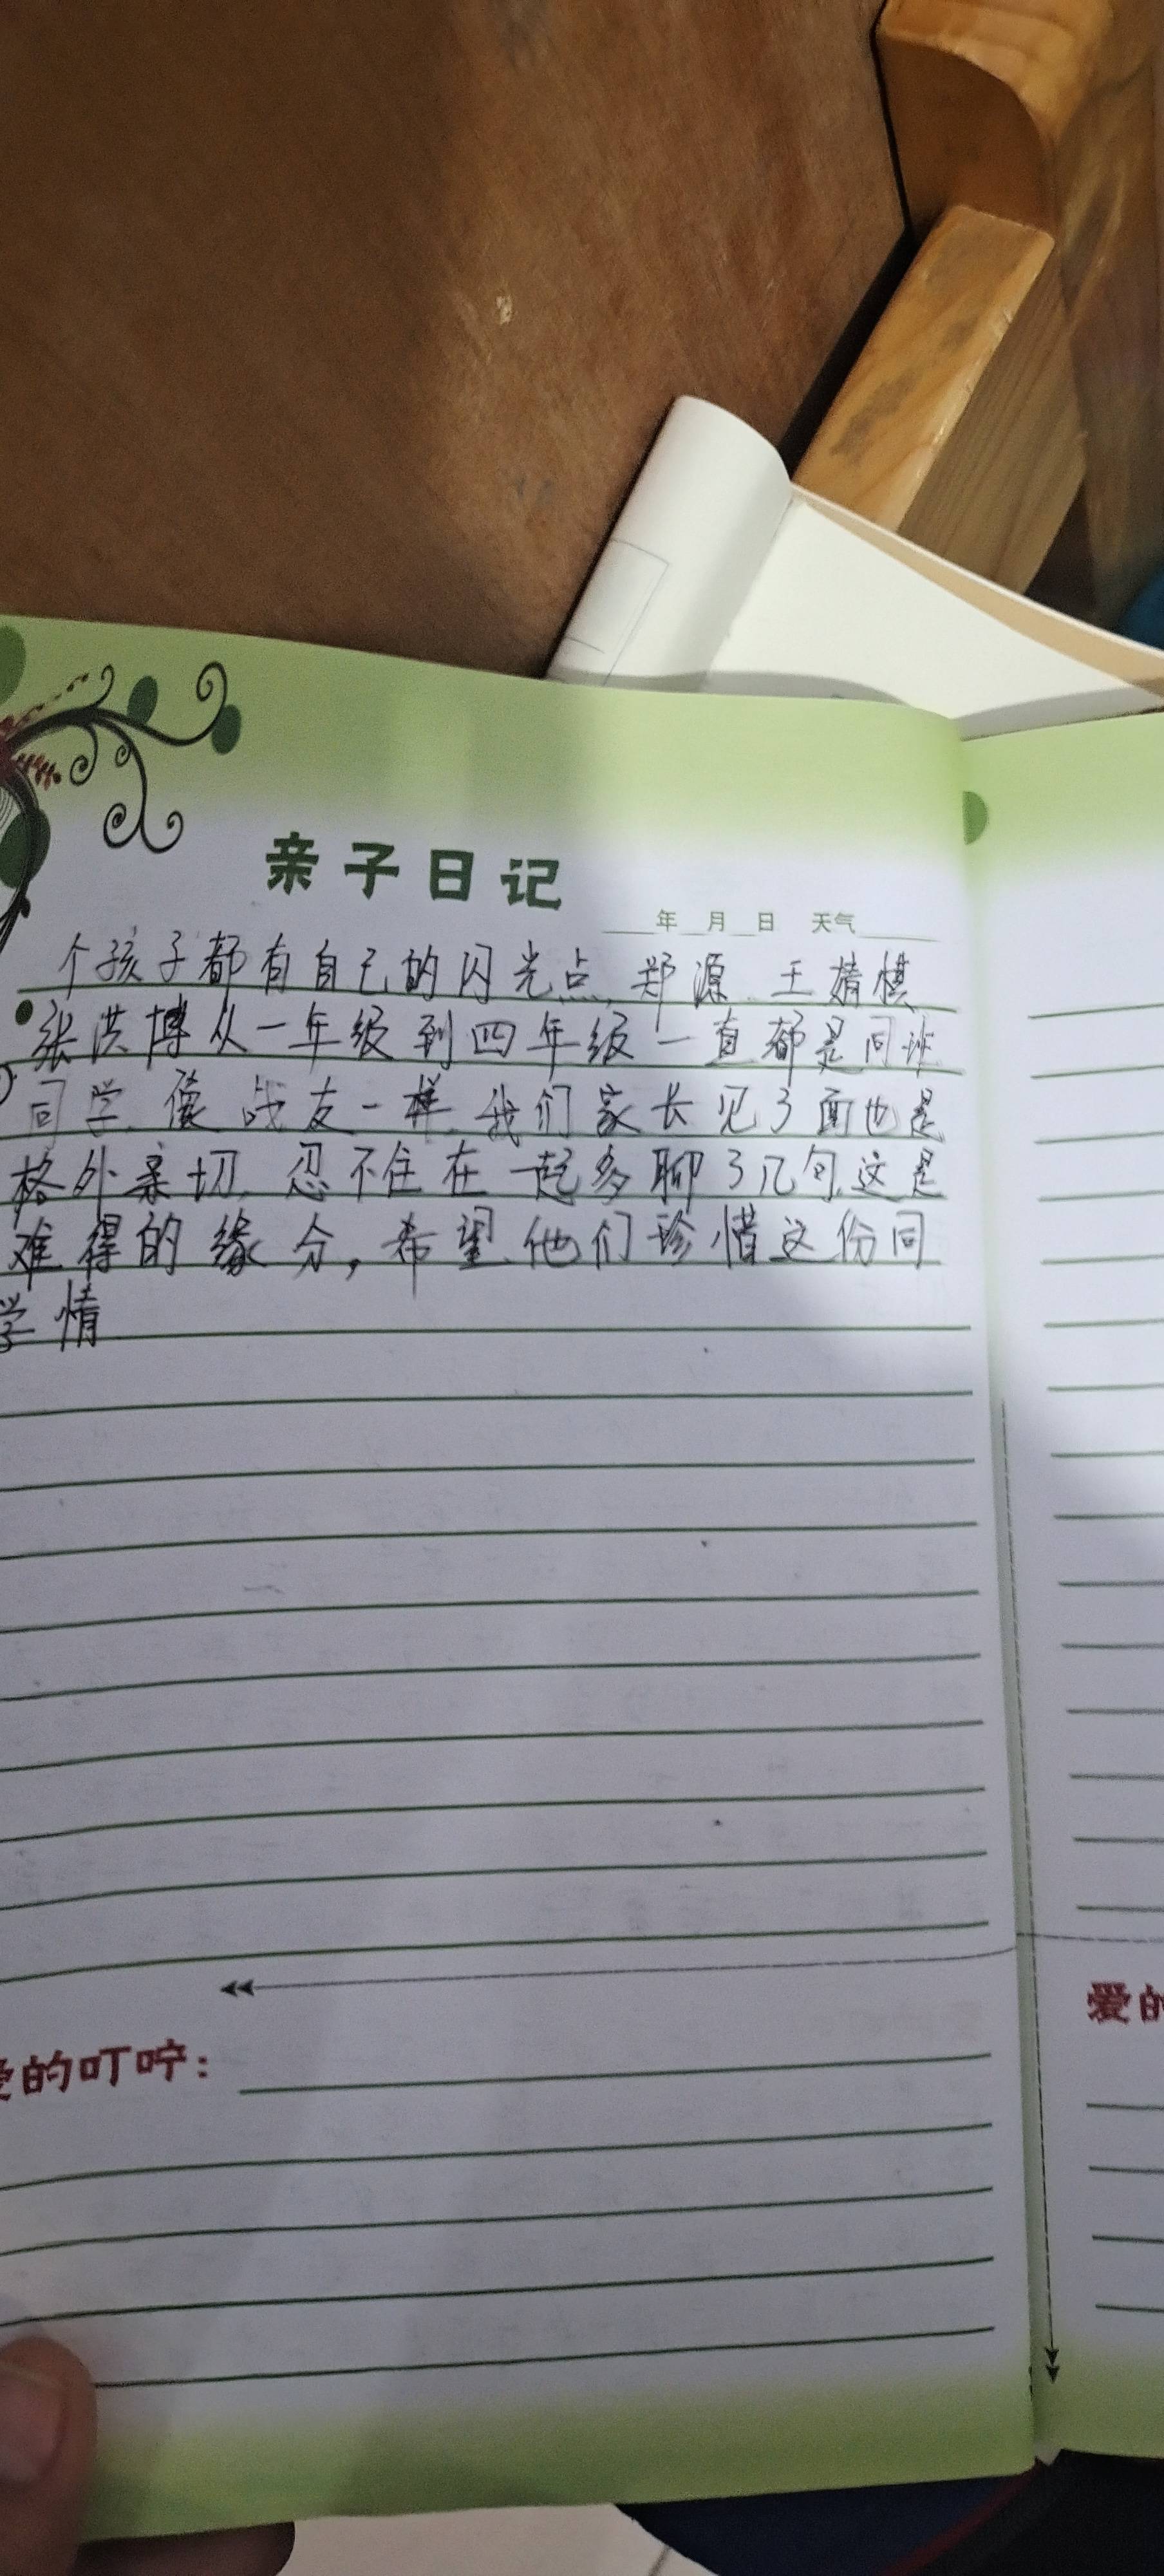 亲子日记
年 月 日 天气
个孩子都有自己的闪光点,郑源、王婧棋
张洪博从一年级到四年级一直都是同班
同学,像战友一样,我们家长见了面也是
格外亲切,忍不住在一起多聊了几句,这是
难得的缘分,希望他们珍惜这份同
学情
爱的叮咛:
爱的